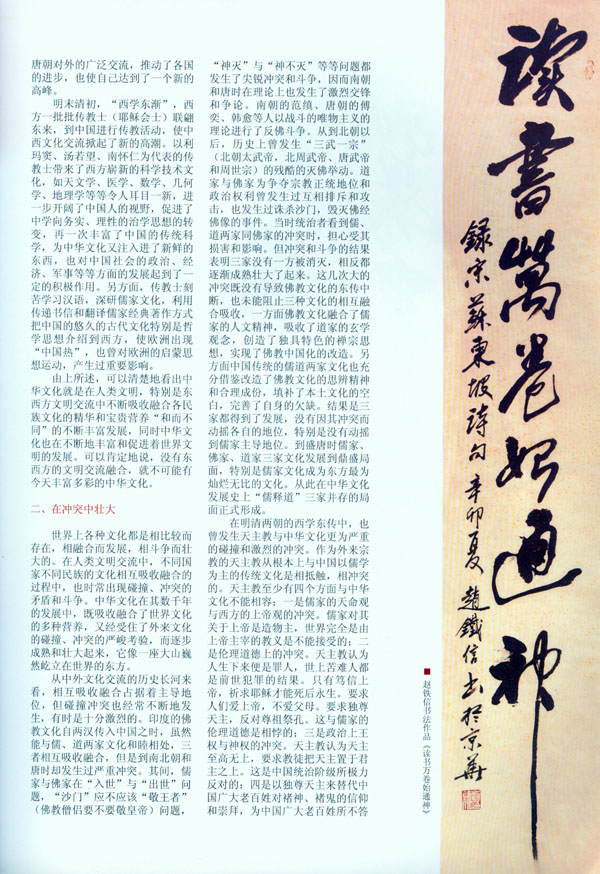 唐朝对外的广泛交流，推动了各国
的进步，也使自己达到了一个新的
高峰。
明末清初，“西学东渐”，西
方一批批传教士（耶稣会士）联翩
东来，到中国进行传教活动，使中
西文化交流掀起了新的高潮。以利
玛窦、汤若望、南怀仁为代表的传
教士带来了西方崭新的科学技术文
化，如天文学、医学、数学、几何
学、地理学等等令人耳目一新，进
一步开阔了中国人的视野，促进了
中学向务实、理性的治学思想的转
变，再一次丰富了中国的传统科
学，为中华文化又注入进了新鲜的
东西，也对中国社会的政治、经
济、军事等等方面的发展起到了一
定的积极作用。另方面，传教士刻
苦学习汉语，深研儒家文化，利用
传递书信和翻译儒家经典著作方式
把中国的悠久的古代文化特别是哲
学思想介绍到西方，使欧洲出现
“中国热”，也曾对欧洲的启蒙思
想运动，产生过重要影响。
由上所述，可以清楚地看出中
华文化就是在人类文明，特别是东
西方文明交流中不断吸收融合各民
族文化的精华和宝贵营养“和而不
同”的不断丰富发展，同时中华文
化也在不断地丰富和促进着世界文
明的发展。可以肯定地说，没有东
西方的文明交流融合，就不可能有
今天丰富多彩的中华文化。
二、在冲突中壮大
世界上各种文化都是相比较而
存在，相融合而发展，相斗争而壮
大的。在人类文明交流中，不同国
家不同民族的文化相互吸收融合的
过程中，也时常出现碰撞、冲突的
矛盾和斗争。中华文化在其数千年
的发展中，既吸收融合了世界文化
的多种营养，又经受住了外来文化
的碰撞、冲突的严峻考验，而逐步
成熟和壮大起来，它像一座大山巍
然屹立在世界的东方。
从中外文化交流的历史长河来
看，相互吸收融合占据着主导地
位，但碰撞冲突也经常不断地发
生，有时是十分激烈的。印度的佛
教文化自两汉传入中国之时，虽然
能与儒、道两家文化和睦相处，三
者相互吸收融合，但是到南北朝和
唐时却发生过严重冲突。其间，儒
家与佛家在“入世”与“出世”问
题，“沙门”应不应该“敬王者”
（佛教僧侣要不要敬皇帝）问题，
“神灭”与“神不灭”等等问题都
发生了尖锐冲突和斗争，因而南朝
和唐时在理论上也发生了激烈交锋
和争论。南朝的范缜、唐朝的傅
奕、韩愈等人以战斗的唯物主义的
理论进行了反佛斗争。从到北朝以
后，历史上曾发生“三武一宗”
（北朝太武帝，北周武帝、唐武帝
和周世宗）的残酷的灭佛举动。道
家与佛家为争夺宗教正统地位和
政治权利曾发生过互相排斥和攻
击，也发生过诛杀沙门，毁灭佛经
佛像的事件。当时统治者看到儒、
道两家同佛家的冲突时，担心受其
损害和影响。但冲突和斗争的结果
表明三家没有一方被消灭，相反都
逐渐成熟壮大了起来。这几次大的
冲突既没有导致佛教文化的东传中
断，也未能阻止三种文化的相互融
合吸收，一方面佛教文化融合了儒
家的人文精神，吸收了道家的玄学
观念，创造了独具特色的禅宗思
想，实现了佛教中国化的改造。另
方面中国传统的儒道两家文化也充
分借鉴改造了佛教文化的思辨精神
和合理成份，填补了本土文化的空
白，完善了自身的欠缺。结果是三
家都得到了发展，没有因其冲突而
动摇各自的地位，特别是没有动摇
到儒家主导地位。到盛唐时儒家、
佛家、道家三家文化发展到鼎盛局
面，特别是儒家文化成为东方最为
灿烂无比的文化。从此在中华文化
发展史上“儒释道”三家并存的局
面正式形成。
在明清两朝的西学东传中，也
曾发生天主教与中华文化更为严重
的碰撞和激烈的冲突。作为外来宗
教的天主教从根本上与中国以儒学
为主的传统文化是相抵触，相冲突
的。天主教至少有四个方面与中华
文化不能相容：一是儒家的天命观
与西方的上帝观的冲突。儒家对其
关于上帝是造物主，世界完全是由
上帝主宰的教义是不能接受的；二
是伦理道德上的冲突。天主教认为
人生下来便是罪人，世上苦难人都
是前世犯罪的结果。只有笃信上
帝，祈求耶稣才能死后永生。要求
人们爱上帝，不爱父母。要求独尊
天主，反对尊祖祭孔。这与儒家的
伦理道德是相悖的；三是政治上王
权与神权的冲突。天主教认为天主
至高无上，要求教徒把天主置于君
主之上。这是中国统治阶级所极力
反对的；四是以独尊天主来替代中
国广大老百姓对诸神、诸鬼的信仰
和崇拜，为中国广大老百姓所不答
■赵铁信书法作品《读书万卷始通神》
读書萬卷始通神
録宋蘇東坡詩句 辛卯夏 趙鐵信书於京華